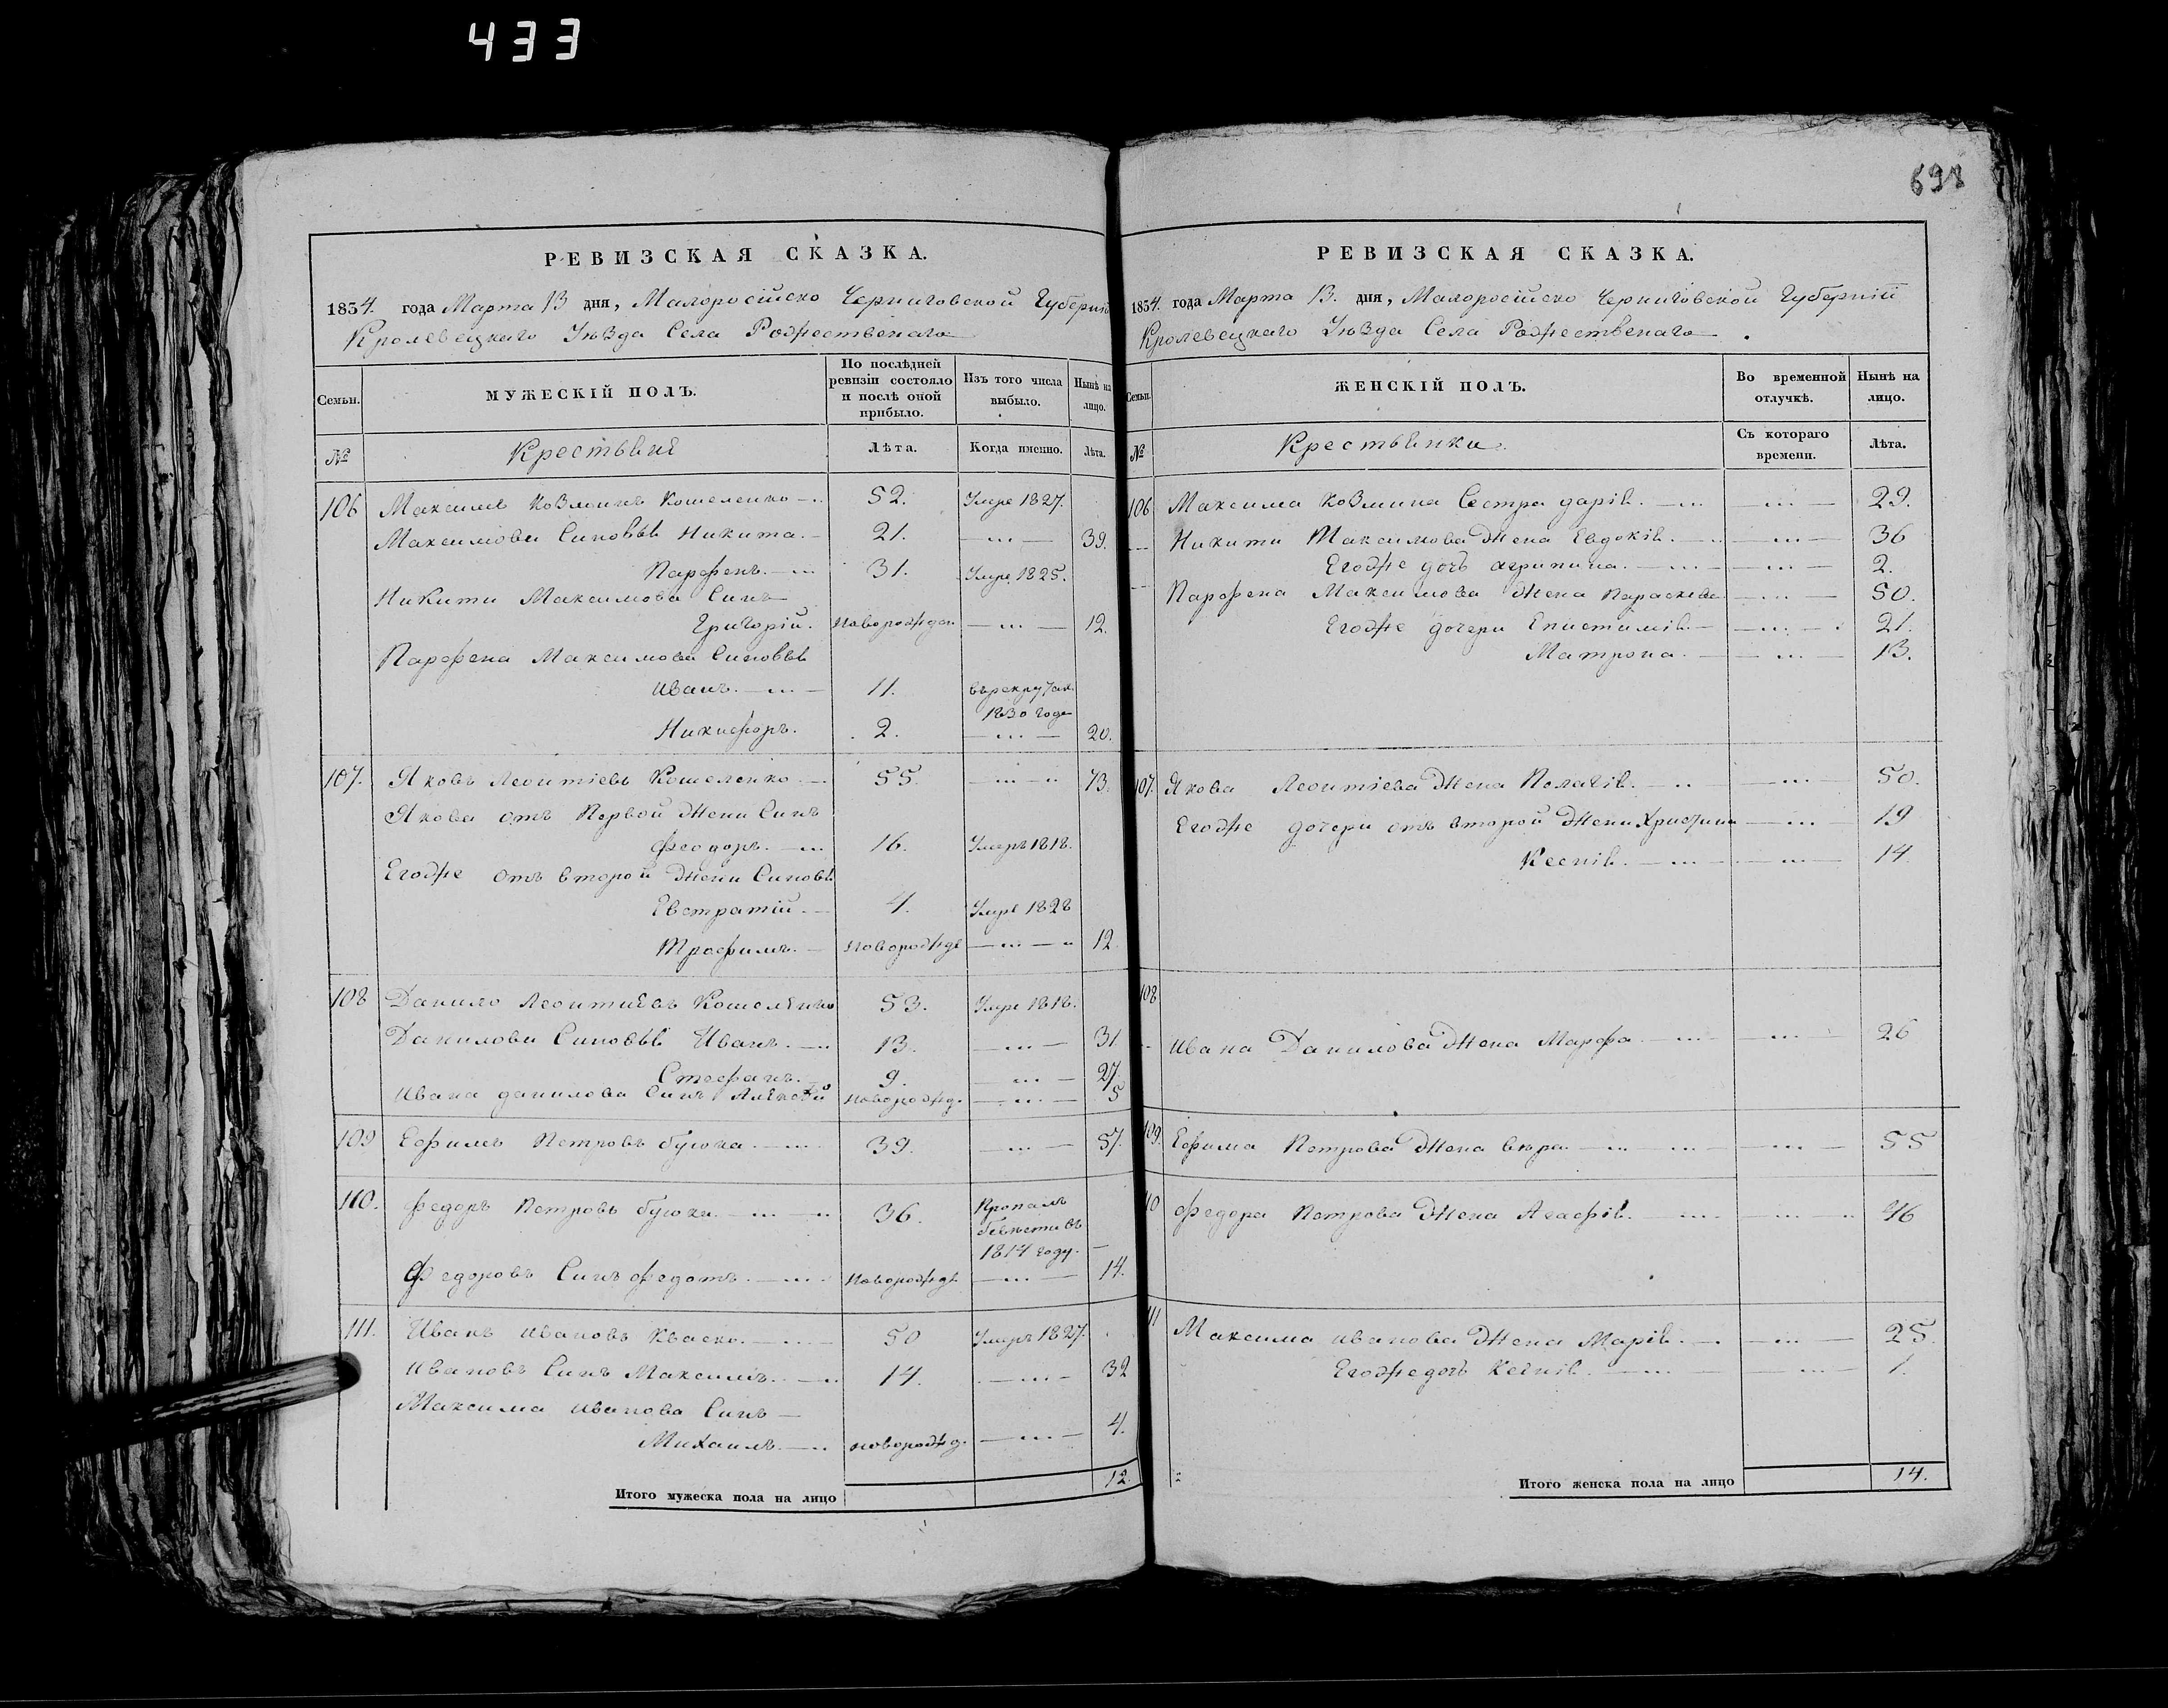 433
698
РЕВИЗСКАЯ СКАЗКА.
1834. года Марта 13 дня, Малоросійско Черниговской Губерніи
Кролевецкаго Уѣзда Села Рождественаго
Семьи.
МУЖЕСКІЙ ПОЛЪ.
По послѣдней ревизіи состояло и послѣ оной прибыло.
Изъ того числа выбыло.
Нынѣ на лицо.
№
Крестьянѣ
Лѣта.
Когда именно.
Лѣта.
106 Максимъ Козминъ Кошеленко 52. Умре 1827.
Максимови Синовья Никита. 21. 39.
Парфенъ. 31. Умре 1825.
Никити Максимова Синъ
Григорій. новорожден. 12.
Парфена Максимова Синовья
Иванъ. 11. въ рекрутах. 1830 года
Никифоръ. 2. 20.
107. Яковъ Леонтіевъ Кошеленко 55. 73.
Якова отъ Первой Жени Синъ
Феодоръ. 16. Умеръ 1818.
Егожъ отъ второй Жени Синовья
Евстратій. 4. Умре 1828
Трофимъ. Новорожде 12
108 Данило Леонтиевъ Кошеленко 53. Умре 1818.
Данилови Синовья Иванъ. 13. 31
Стефанъ. 9. 27.
Ивана данилова Синъ Алексѣй новорожд. 5
109 Ефимъ Петровъ буюка 39. 57.
110. Федоръ Петровъ буюка 36. Пропалъ безвѣсти въ 1814 году.
Федоровъ Синъ Федотъ. новорожде 14.
111. Иванъ Ивановъ Кваско. 50 Умеръ 1827.
Ивановъ Синъ Максимъ. 14. 32
Максима Иванова Синъ
Михаилъ. новорожд. 4.
Итого мужеска пола на лицо 12.
РЕВИЗСКАЯ СКАЗКА.
1834. года Марта 13. дня, Малоросійско Черниговской Губерніи
Кролевецкаго Уѣзда Села Рождественаго
Семьи.
ЖЕНСКІЙ ПОЛЪ.
Во временной отлучкѣ.
Нынѣ на лицо.
№
Крестьянки.
Съ котораго времени.
Лѣта.
106 Максима Козмина Сестра дарія. 29.
Никити Максимова Жена Евдокія. 36
Егоже дочь агрипина. 2.
Парфена Максимова Жена Параскева 50.
Егоже дочери Епистимія 21.
Матрона. 13.
107. Якова Леонтіева Жена Пелагія. 50.
Егоже дочери отъ второй Жени Христина 19
Ксенія. 14
108
Ивана Данилова Жена Марфа 26
109. Ефима Петрова Жена вѣра 55
110 Федора Петрова Жена Агафія. 46
111 Максима Иванова Жена Марія. 25.
Егоже дочь Ксенія. 1.
Итого женска пола на лицо 14.